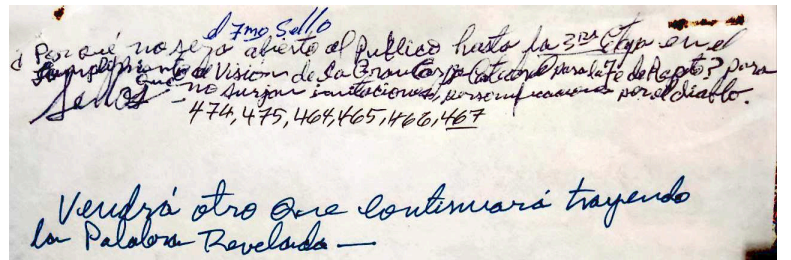 el 7mo Sello
¿Por qué no será abierto al Publico hasta la 3ra Etapa en el
Cumplimiento de Vision de la Gran Carpa Catedral para la Fe de Rapto? para
que no surjan imitaciones, personificaciones por el diablo.
474, 475, 464, 465, 466, 467
Vendrá otro que continuará trayendo
la Palabra Revelada —